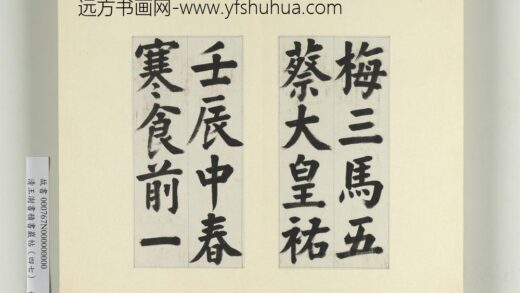 远方书画网-www.yfshuhua.com
梅三馬五
蔡大皇祐
壬辰中春
寒食前一
故書000767N000000000
清王澍書積書巖帖(四七)